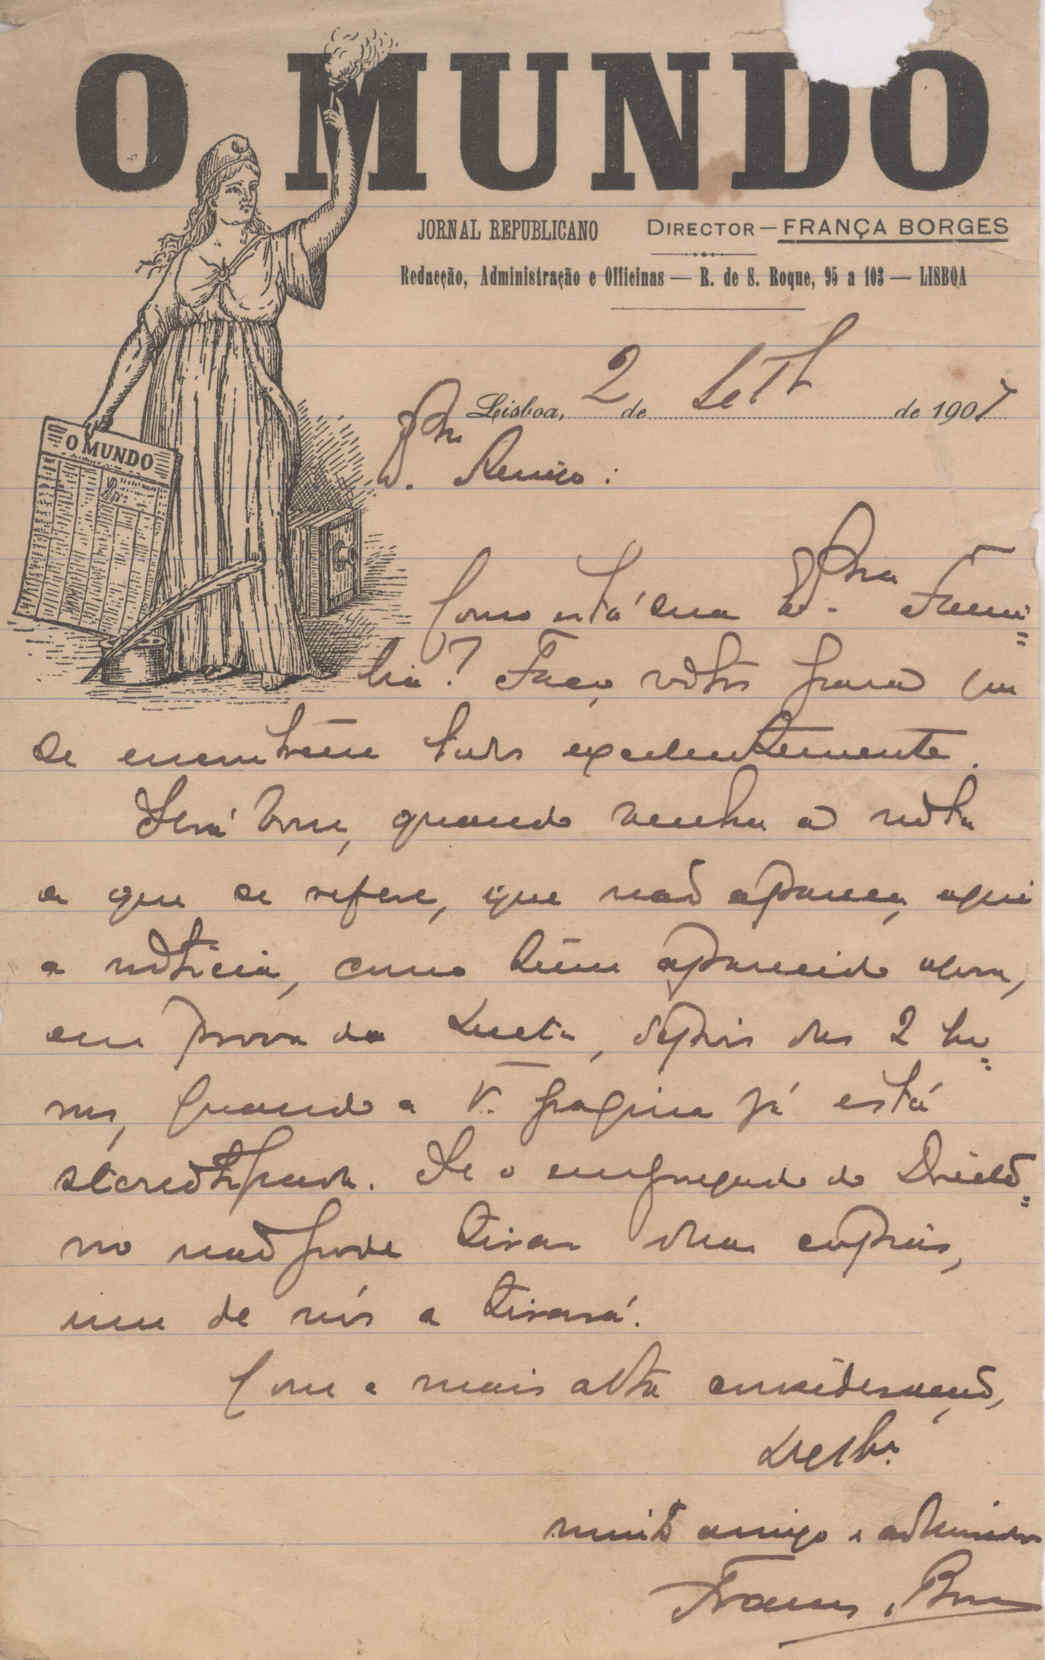 O MUNDO
JORNAL REPUBLICANO DIRECTOR — FRANÇA BORGES
Redacção, Administração e Officinas — R. de S. Roque, 95 a 103 — LISBOA
Lisboa, 2 de Setb de 1907
O MUNDO
Amigo:
Como está sua Fami=
lia? Faço votos para que
se encontrem todos excelentemente.
Será bom, quando venha a nota
a que se refere, que não appareça aqui
a noticia, como tem apparecido agora,
em prova da Lucta, depois das 2 ho=
ras, quando a 1ª pagina já está
stereotipada. Se o empregado do Directo=
rio não pode tirar duas copias,
um de nós a tirará.
Com a mais alta consideração,
muito amigo e admirador
França Borges